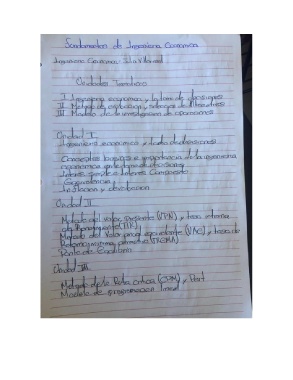 Fundamentos de Ingenieria Economica
Ingenieria Economica:
Unidades Tematicas
I Ingenieria economica y la toma de decisiones
II Metodos de evaluacion y seleccion de alternativas
III Modelos de la investigacion de operaciones
Unidad I
Ingenieria economica y toma de decisiones
Conceptos basicos e importancia de la ingenieria
economica
Interes simple e Interes Compuesto
Equivalencia
Inflacion y devaluacion
Unidad II
Metodo del valor presente (VPN) y tasa interna
de Rendimiento (TIR)
Metodo del Valor anual equivalente (VAE) y tasa de
(TREMA)
Punto de Equilibrio
Unidad III
Metodo de la Ruta critica (CPM) y Pert
Modelo de programacion lineal